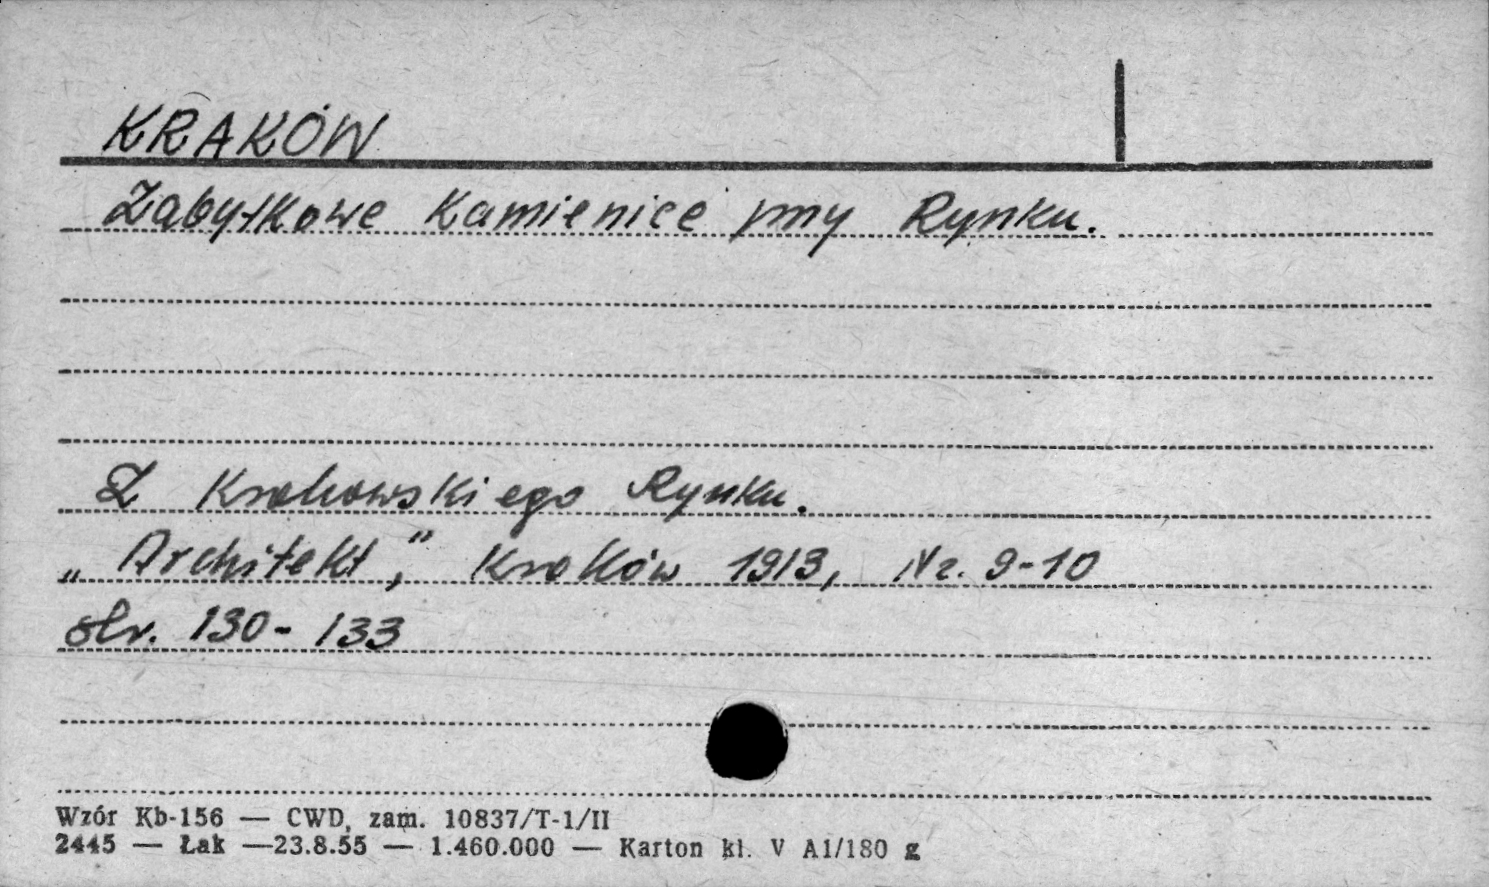 KRAKÓW
Zabytkowe Kamienice przy Rynku.
Z Krakowskiego Rynku.
„Architekt," Kraków 1913, Nr. 9-10
str. 130-133
Wzór Kb-156 — CWD, zam. 10837/T-1/II
2445 — Łak —23.8.55 — 1.460.000 — Karton kl. V A1/180 g